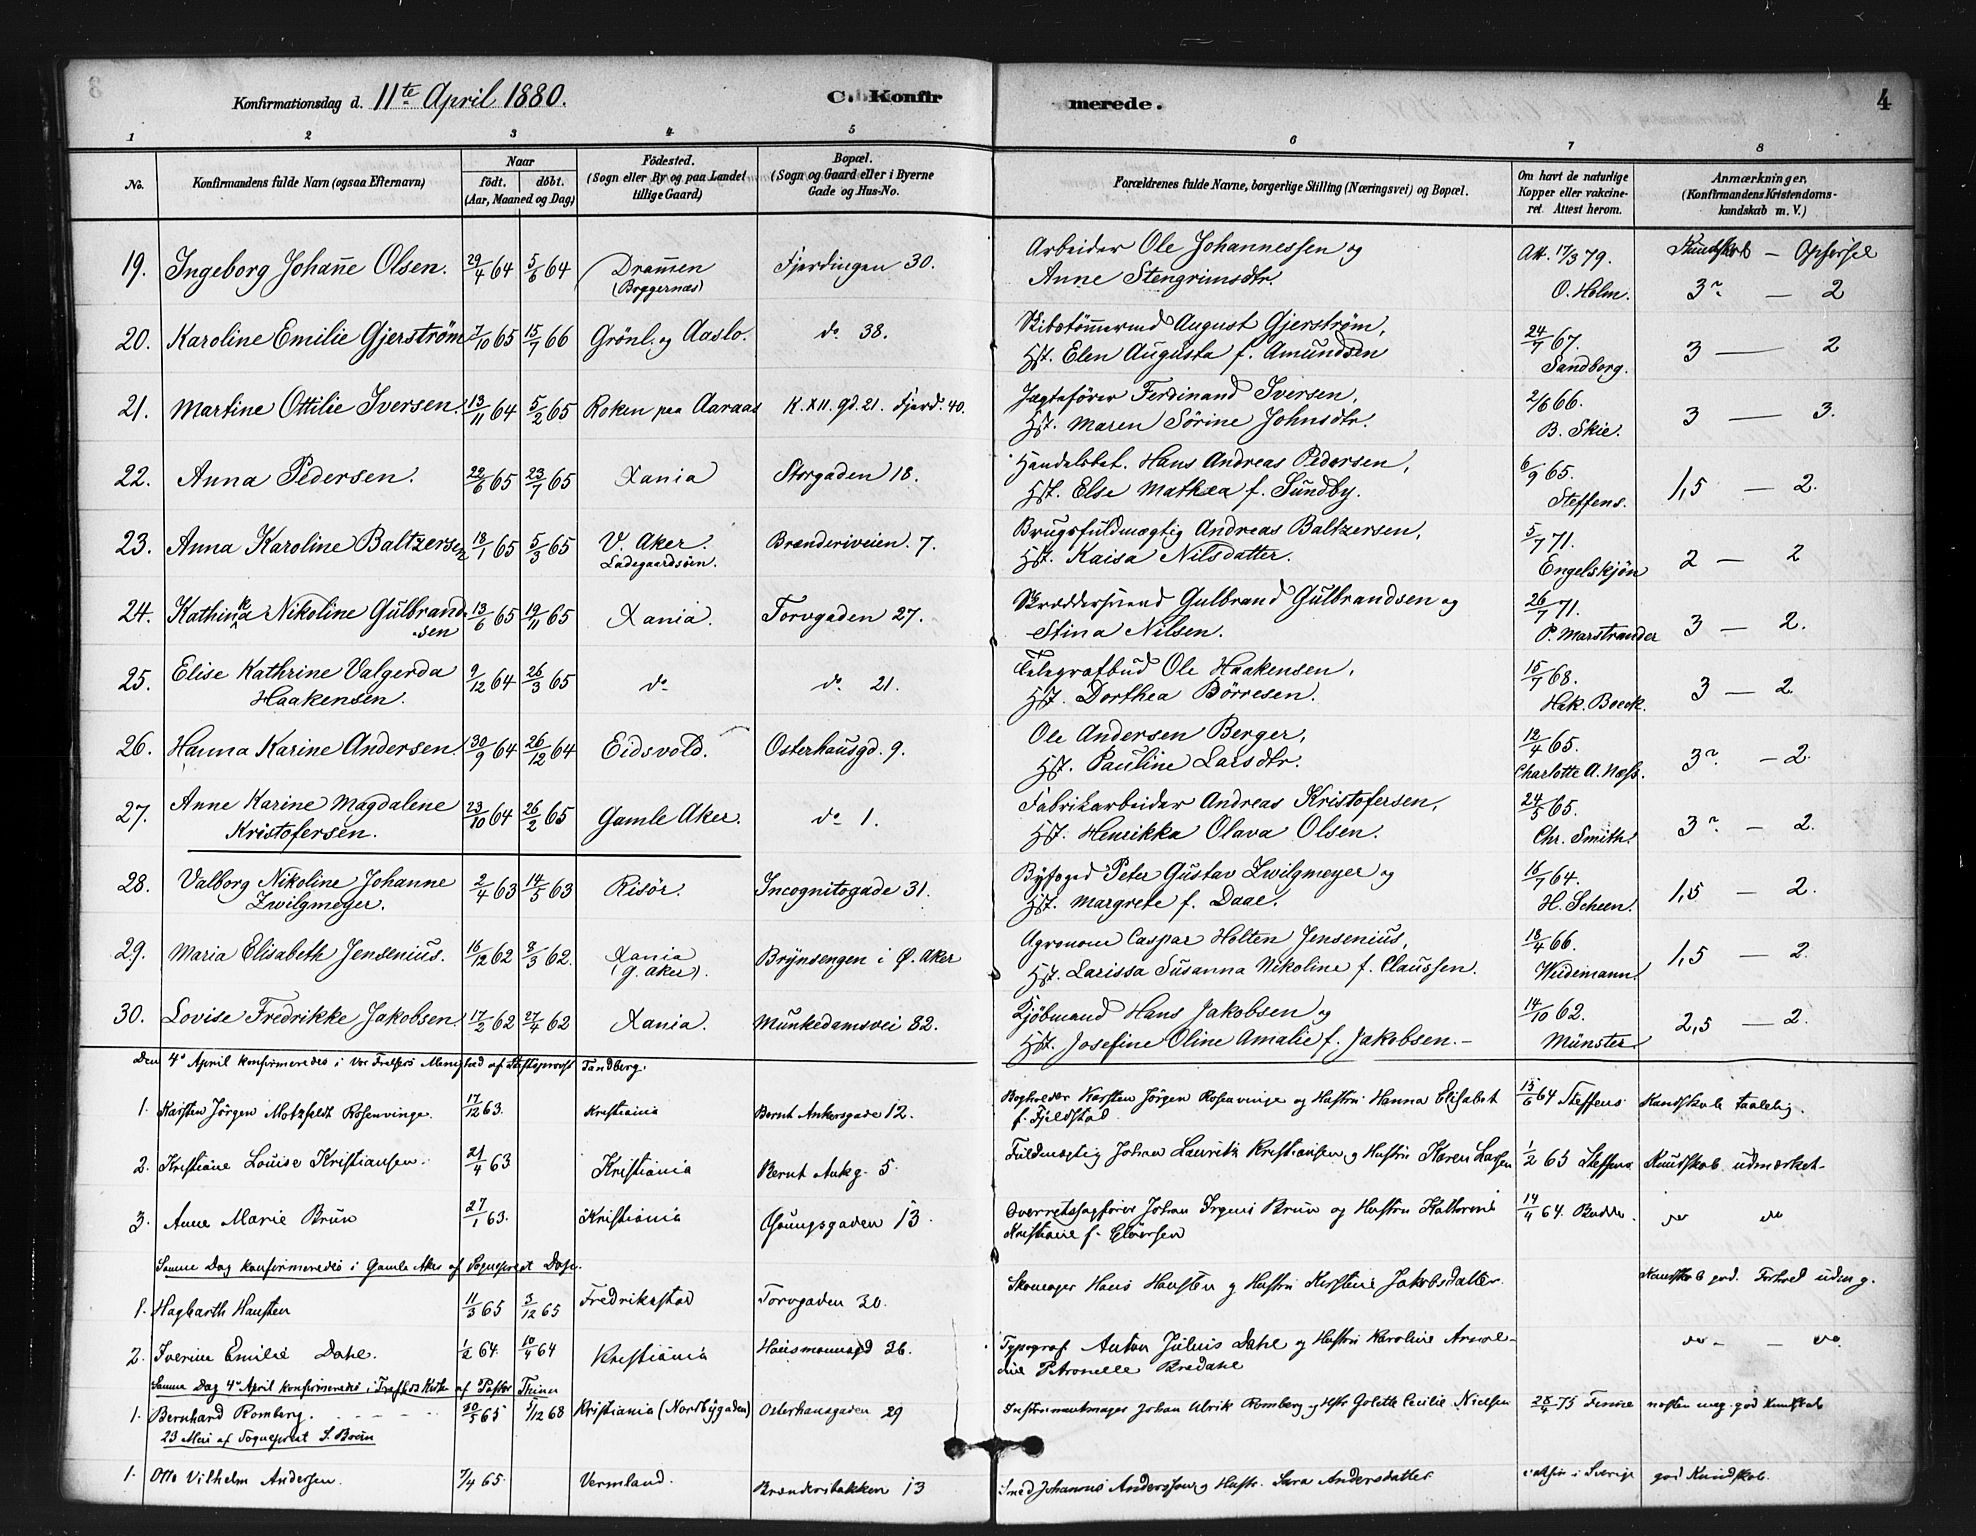 Konfirmationsdag d. 11te April 1880.
C. Konfirmerede.
4
1 2 3 4 5 6 7 8
No.
Konfirmandens fulde Navn (ogsaa Efternavn)
Naar
födt. döbt.
(Aar, Maaned og Dag)
Födested.
(Sogn eller By og paa Landet
tillige Gaard)
Bopæl.
(Sogn og Gaard eller i Byerne
Gade og Hus-No.
Forældrenes fulde Navne, borgerlige Stilling (Næringsvei) og Bopæl.
Om havt de naturlige
Kopper eller vakcine-
ret. Attest herom.
Anmærkninger,
(Konfirmandens Kristendoms-
kundskab m. V.)
Kundskab – Opførsel
19. Ingeborg Johanne Olsen. 29/4 64 5/6 64 Drammen Fjerdingen 30. Arbeider Ole Johannessen og Att. 17/3 79.
(Boggernæs) Anne Stengrimsdtr. O. Holm. 3 – 2
20. Karoline Emilie Gjerström 7/10 65 15/7 66 Grönl. og Aaslo. do 38. Skibstömmermd August Gjerström, 24/7 67.
Hst. Elen Augusta f. Amundsen Sandborg. 3 – 2
21. Martine Ottilie Iversen. 13/11 64 5/2 65 Röken paa Aaraas K. XII. gd. 21. Fjerd. 40. Jagtefører Ferdinand Iversen, 2/6 66.
Hst. Maren Sörine Johnsdtr. B. Skie. 3 – 3.
22. Anna Pedersen. 22/6 65 23/7 65 Xania Storgaden 18. Handelsbet. Hans Andreas Pedersen, 6/9 65.
Hst. Else Mathea f. Sundby. Steffens. 1,5 – 2.
23. Anna Karoline Baltzersen 18/1 65 5/3 65 V. Aker. Brænderiveien. 7. Brugsfuldmægtig Andreas Baltzersen, 5/7 71.
Ladegaardsöen. Hst. Kaisa Nilsdatter. Engelskjön 2 – 2
24. Kathinka Nikoline Gulbrand- 13/6 65 19/11 65 Xania. Torvgaden 27. Skræddersvend Gulbrand Gulbrandsen og 26/7 71.
sen Stina Nilsen. P. Marstrander 3 – 2.
25. Elise Kathrine Valgerda 9/12 64 26/3 65 do do 21. Telegrafbud Ole Haakensen, 15/7 68.
Haakensen. Hst. Dorthea Börresen. Hak. Boeck. 3 – 2
26. Hanna Karine Andersen 30/9 64 26/12 64 Eidsvold. Osterhausgd. 9. Ole Andersen Berger, 12/4 65.
Hst. Pauline Larsdtr. Charlotte A. Næss. 3 – 2.
27. Anne Karine Magdalene 23/10 64 26/2 65 Gamle Aker. do 1. Fabrikarbeider Andreas Kristofersen, 24/5 65.
Kristofersen. Hst. Henrikka Olava Olsen. Chr. Smith. 3 – 2.
28. Valborg Nikoline Johanne 2/4 63 14/5 63 Risör. Incognitogade 31. Byfoged Peter Gustav Zwilgmeyer og 16/7 64.
Zwilgmeyer. Hst. Margrete f. Daae. H. Scheen. 1,5 – 2.
29. Maria Elisabeth Jensenius. 16/12 62 8/3 62. Xania Brynsengen i Ø. Aker Agronom Caspar Holten Jensenius, 18/4 66.
(g. Aker). Hst. Larissa Susanna Nikoline f. Claussen. Weidemann. 1,5 – 2.
30. Lovise Fredrikke Jakobsen 17/2 62 27/4 62 Xania. Munkedamsvei 82. Kjöbmand Hans Jakobsen og 14/10 62.
Hst. Josefine Oline Amalie f. Jakobsen. – Münster. 2,5 – 2.
Den 4de April konfirmeredes i Vor Frelsers Menighed af Stiftsprovst Tandberg.
1. Karsten Jörgen Motzfeldt Rosenvinge. 17/12 63. Kristiania Bernt Ankersgade 12. Bogholder Karsten Jörgen Rosenvinge og Hustru Hanna Elisabet 15/6 64 Steffens Kundskab taalelig.
f. Fjeldstad
2. Kristiane Louise Kristiansen. 21/4 63 Kristiania Bernt Ankg. 5. Fuldmægtig Johan Lauritz Kristiansen og Hustru Karen Larsen 1/2 65 Steffens Kundskab udmærket
3. Anne Marie Brun 27/1 63. Kristiania Osungsgaden 13. Overretssagfører Johan Irgens Brun og Hustru Kathrine 14/4 64. Budde. do do
Kristiane f. Gløersen
Samme Dag konfirmeredes i Gamle Aker af Sogneprest Dase.
1. Hagbarth Hansten 11/3 65 3/12 65 Fredrikstad Torvgaden 20. Skomager Hans Hansten og Hustru Kirstine Jakobsdatter. Kundskab god. Forhold udm g.
2. Iverine Emilie Dahl. 1/2 64. 10/4 64 Kristiania Hausmannsgd 36. Typograf Anton Julius Dahl og Hustru Karoline Arnol-
dine Petronelle Bredahl do – – do.
Samme Dag 4de April konfirmeredes i Trefold. Kirke af Pastor
1. Bernhard Romberg. 30/5 65 5/12 68 Kristiania (Nordbygaden) Osterhausgaden 29 Instrumentmager Johan Ulrik Romberg og Hstr Golette Cecilie Nielsen 28/4 75 næsten meg. god Kundskab
23 Mai af Sogneprest S. Brun
1. Otto Vilhelm Andersen. 7/4 65. Vermland. Brænderibakken 13 Smed Johannes Anderssen og Hustr. Sara Andersdatter i Sverige god Kundskab.